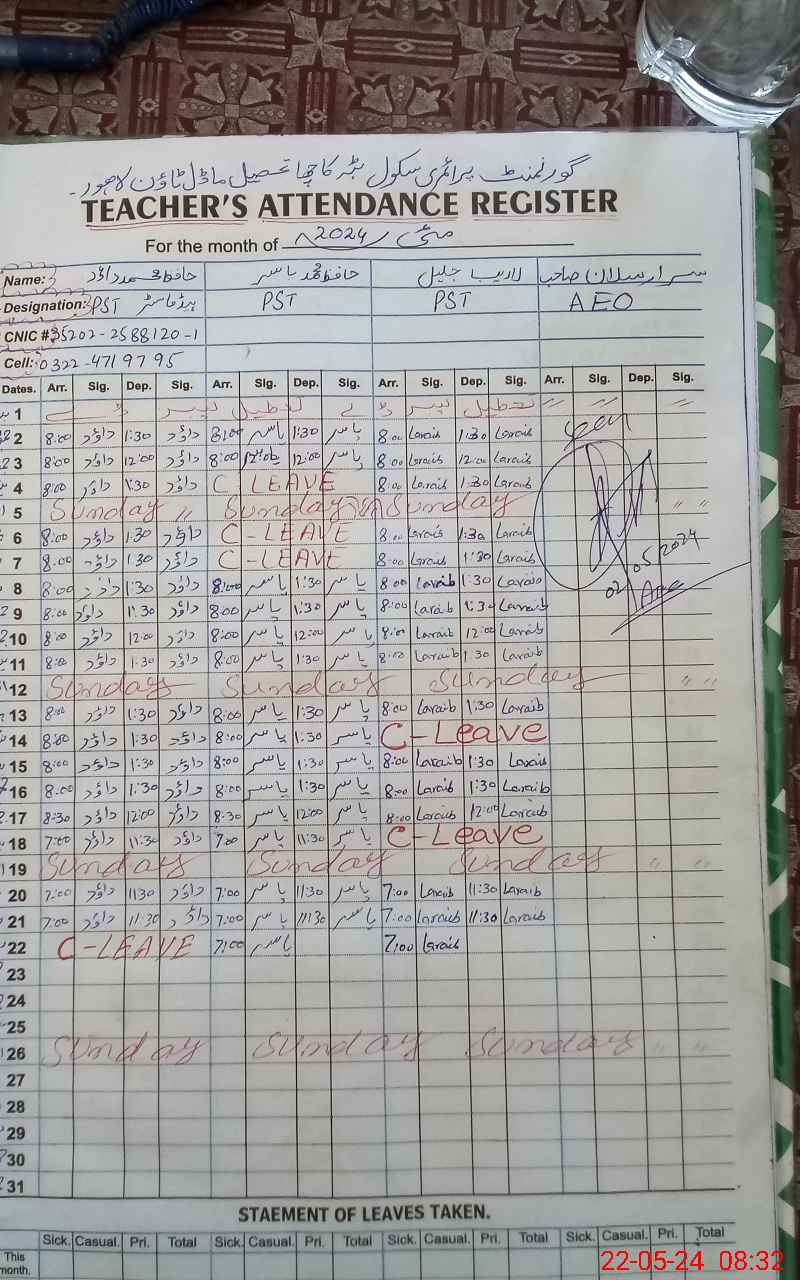 گورنمنٹ پرائمری سکول ہٹہ کاچھا تحصیل ماڈل ٹاؤن لاہور۔
TEACHER'S ATTENDANCE REGISTER
For the month of مئی 2024
Name: حافظ محمد داؤد حافظ محمد یاسر لاریب جلیل سر ارسلان صاحب
Designation: PST ہیڈماسٹر PST PST AEO
CNIC # 35202-2588120-1
Cell: 0322-4719795
Dates. Arr. Sig. Dep. Sig. Arr. Sig. Dep. Sig. Arr. Sig. Dep. Sig. Arr. Sig. Dep. Sig.
1 تعطیل لیبر ڈے تعطیل لیبر ڈے " " "
2 8:00 داؤد 1:30 داؤد 8:00 یاسر 1:30 یاسر 8:00 Laraib 1:30 Laraib
3 8:00 داؤد 12:00 داؤد 8:00 یاسر 12:00 یاسر 8:00 Laraib 12:00 Laraib
4 8:00 داؤد 1:30 داؤد C LEAVE 8:00 Laraib 1:30 Laraib
5 Sunday " Sunday Sunday " "
6 8:00 داؤد 1:30 داؤد C-LEAVE 8:00 Laraib 1:30 Laraib
7 8:00 داؤد 1:30 داؤد C-LEAVE 8:00 Laraib 1:30 Laraib
02/05/2024
8 8:00 داؤد 1:30 داؤد 8:00 یاسر 1:30 یاسر 8:00 Laraib 1:30 Laraib
9 8:00 داؤد 1:30 داؤد 8:00 یاسر 1:30 یاسر 8:00 Laraib 1:30 Laraib
10 8:00 داؤد 12:00 داؤد 8:00 یاسر 12:00 یاسر 8:00 Laraib 12:00 Laraib
11 8:00 داؤد 1:30 داؤد 8:00 یاسر 1:30 یاسر 8:00 Laraib 1:30 Laraib
12 Sunday Sunday Sunday " "
13 8:00 داؤد 1:30 داؤد 8:00 یاسر 1:30 یاسر 8:00 Laraib 1:30 Laraib
14 8:00 داؤد 1:30 داؤد 8:00 یاسر 1:30 یاسر C-Leave
15 8:00 داؤد 1:30 داؤد 8:00 یاسر 1:30 یاسر 8:00 Laraib 1:30 Laraib
16 8:00 داؤد 1:30 داؤد 8:00 یاسر 1:30 یاسر 8:00 Laraib 1:30 Laraib
17 8:30 داؤد 12:00 داؤد 8:30 یاسر 12:00 یاسر 8:00 Laraib 12:00 Laraib
18 7:00 داؤد 11:30 داؤد 7:00 یاسر 11:30 یاسر C-Leave
19 Sunday Sunday Sunday " "
20 7:00 داؤد 11:30 داؤد 7:00 یاسر 11:30 یاسر 7:00 Laraib 11:30 Laraib
21 7:00 داؤد 11:30 داؤد 7:00 یاسر 11:30 یاسر 7:00 Laraib 11:30 Laraib
22 C-LEAVE 7:00 یاسر 7:00 Laraib
23
24
25
26 Sunday Sunday Sunday " "
27
28
29
30
31
STAEMENT OF LEAVES TAKEN.
Sick. Casual. Pri. Total Sick. Casual. Pri. Total Sick. Casual. Pri. Total Sick. Casual. Pri. Total
This month.
22-05-24 08:32